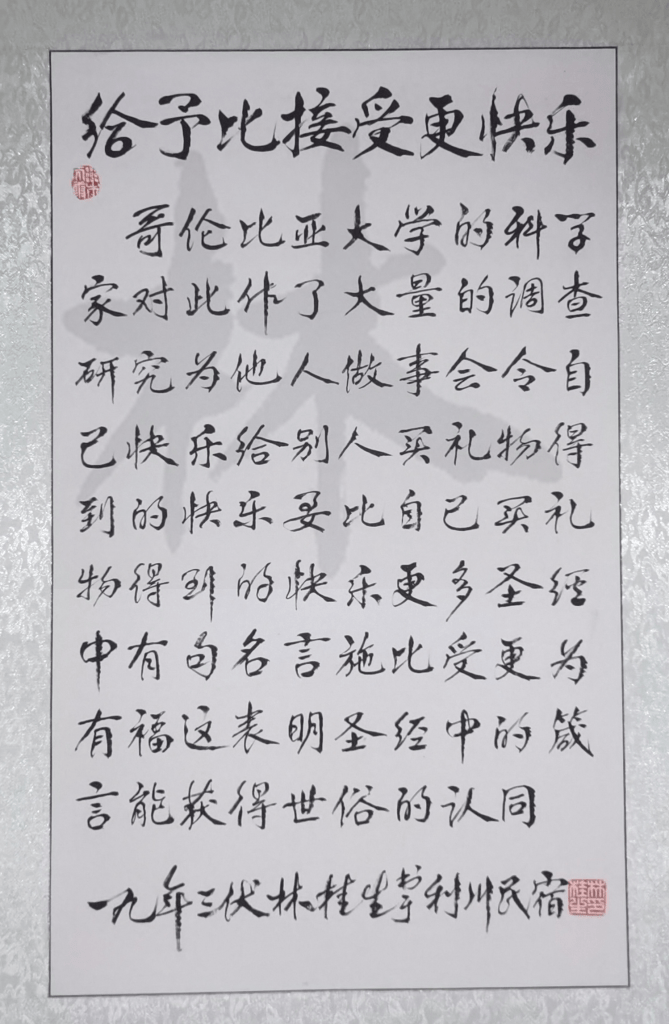 给予比接受更快乐
哥伦比亚大学的科学
家对此作了大量的调查
研究为他人做事会令自
己快乐给别人买礼物得
到的快乐要比自己买礼
物得到的快乐更多圣经
中有句名言施比受更为
有福这表明圣经中的箴
言能获得世俗的认同
一九年三伏林桂生书于利川民宿
林